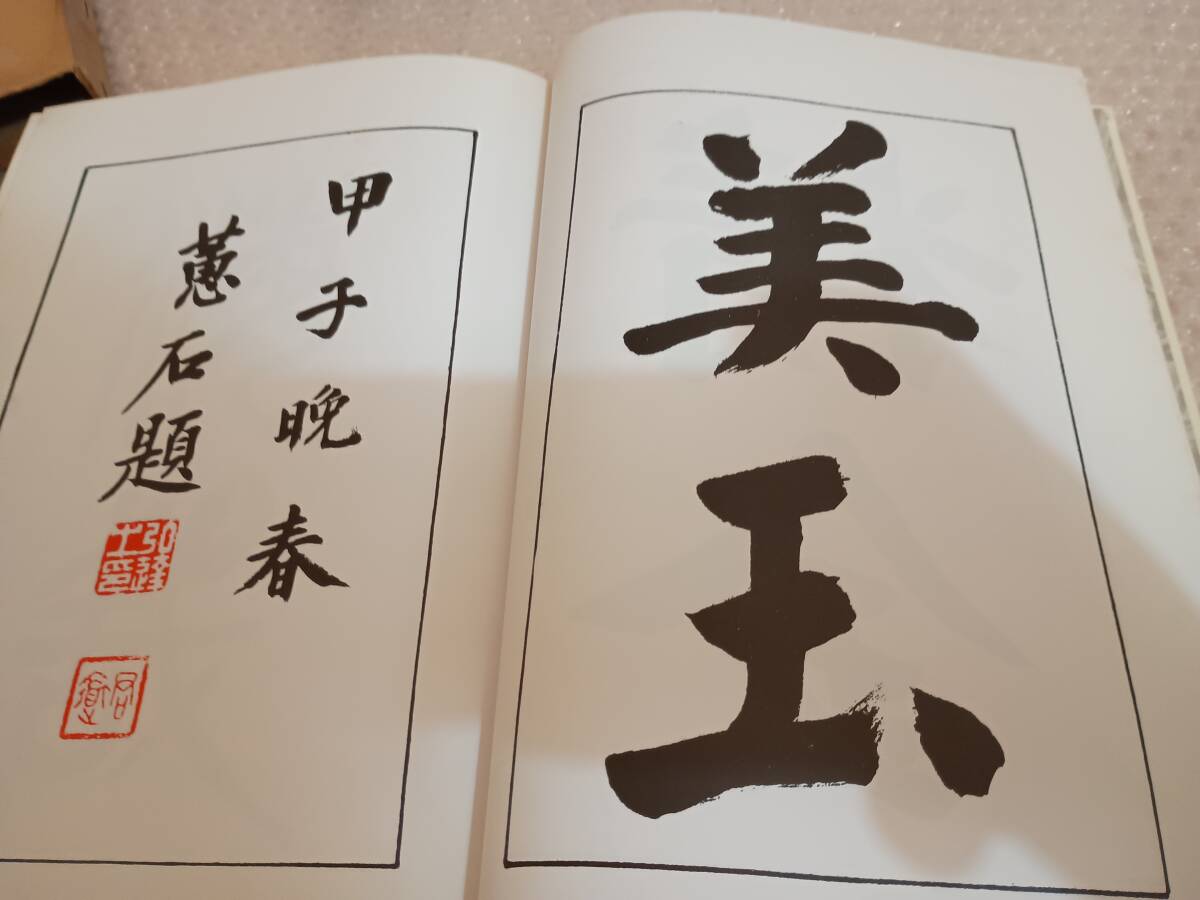 美玉
甲子晩春
蕙石題